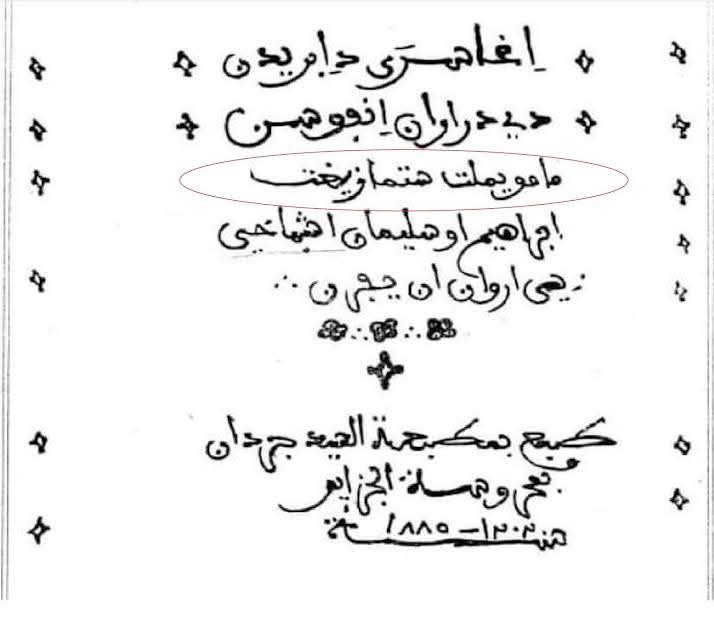 اِغاسرَى دِابريدن
دي دراران اِنفوسن
مامو يملت ستمازيغت
ابراهيم او سليمان اشماخي
اروان ان يفرن
طبع بمطبعة السيد جردان
بمحروسة الجزاير
سنة ١٣٠٢ – ١٨٨٥